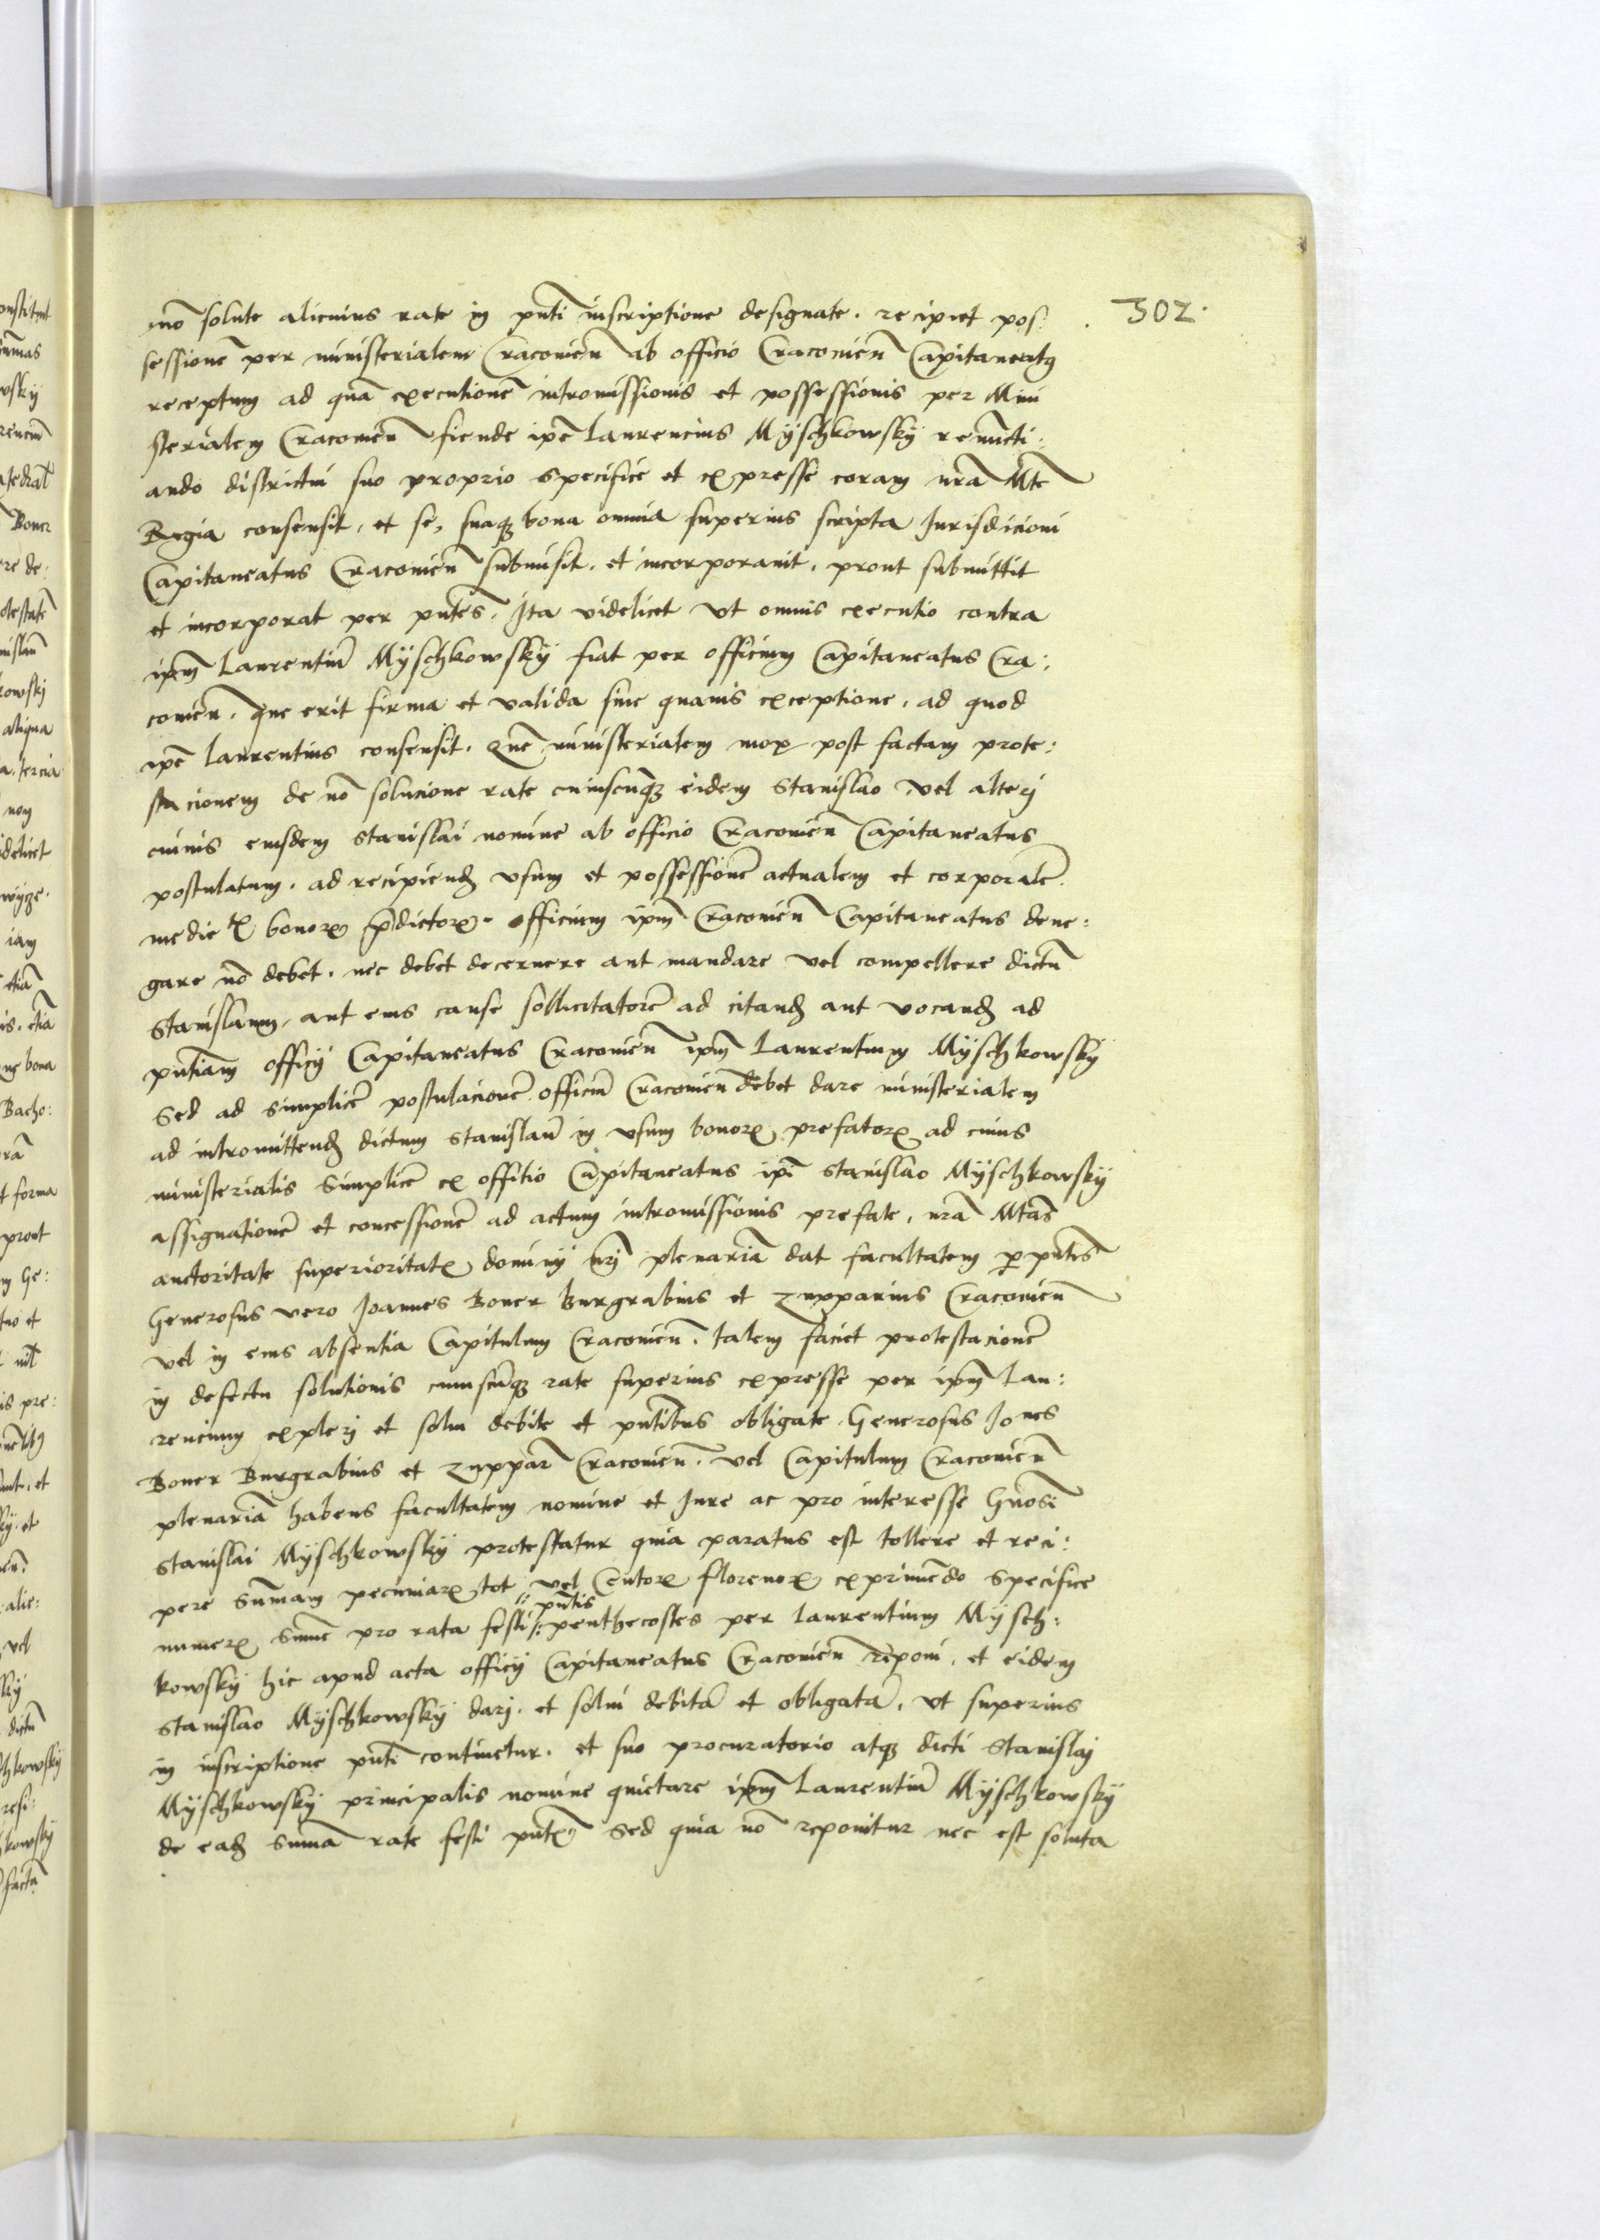 302.
nō solute alicuius rate in pūti inscriptione designate. recipiet pos:
sessionē per ministerialem Cracouieñ ab officio Cracouieñ Capitaneatus
receptum ad quā executionē intromissionis et possessionis per Mini
sterialem Cracouieñ fiende ipē Laurencius Myschkowsky renūcti:
ando districtui suo proprio specifice et expresse coram nrā Mte
Regia consensit, et se, suaq bona omnia superius scripta Jurisdicioni
Capitaneatus Cracouieñ submisit. et incorporauit. prout submittit
et incorporat per pūtes. Ita videlicet vt omnis executio contra
ipm Laurentiū Myschkowsky fiat per officium Capitaneatus Cra:
couieñ. que erit firma et valida sine quauis exceptione. ad quod
ipē Laurentius consensit. Quē ministerialem mox post factam prote:
stacionem de nō solucione rate cuiuscūq eidem Stanislao vel alteri
cuius eiusdem Stanislai nomine ab officio Cracouieñ Capitaneatus
postulatum. ad recipiend vsum et possessionē actualem et corporalē
medietꝭ bonorꝝ predictorꝝ. officium ipm Cracouieñ Capitaneatus dene:
gare nō debet. nec debet decernere aut mandare vel compellere dictū
Stanislaum, aut eius cause sollicitatorē ad citand aut vocand ad
pūtiam officij Capitaneatus Cracouieñ ipm Laurentium Myschkowsky
Sed ad simplicē postulacionē officiū Cracouieñ debet dare ministerialem
ad intromittend dictum Stanislaū in vsum bonorꝝ prefatorꝝ ad cuius
ministerialis simplicē ex offitio Capitaneatus ipi Stanislao Myschkowsky
assignationē et concessionē ad actum intromissionis prefate, nrā Mtas
auctoritate superioritatꝭ dominij nrj plenariā dat facultatem p pūtes
Generosus vero Joannes Boner Burgrabius et Zupparius Cracouieñ
vel in eius absentia Capitulum Cracouieñ. talem faciet protestacionē
in defectu solutionis cuiuscūq rate superius expresse per ipm Lau:
rencium expleri et solui debite et pūtibus obligate. Generosus Joñes
Boner Burgrabius et Zuppar Cracouieñ. vel Capitulum Cracouieñ
plenariā habens facultatem nomine et Jure ac pro interesse Gñosi
Stanislai Myschkowsky protestatur quia paratus est tollere et reci:
pere Sūmam pecuniarꝝ tot vel Centorꝝ florenorꝝ exprimēdo specifice
numerꝝ Sūme pro rata festi pūtis penthecostes per Laurentium Mysch:
kowsky hic apud acta officij Capitaneatus Cracouieñ reponi, et eidem
Stanislao Myschkowsky dari. et solui debitā et obligatā. vt superius
in inscriptione pūti continetur. et suo procuratorio atq dicti Stanislaj
Myschkowsky principalis nomine quietare ipm Laurentiū Myschkowsky
de ead Summa rate festi pūtꝭ Sed quia nō reponitur nec est soluta